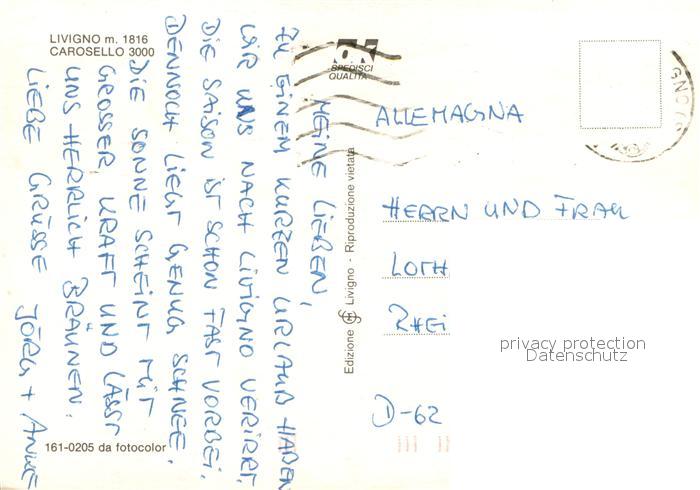 LIVIGNO m. 1816
CAROSELLO 3000
SPEDISCI
QUALITÀ
MEINE LIEBEN,
ZU EINEM KURZEN URLAUB HABEN
WIR UNS NACH LIVIGNO VERIRRT.
DIE SAISON IST SCHON FAST VORBEI.
DENNOCH LIEGT GENUG SCHNEE.
DIE SONNE SCHEINT MIT
GROSSER KRAFT UND LÄSST
UNS HERRLICH BRÄUNEN.
LIEBE GRÜSSE JÖRG + ANKE
161-0205 da fotocolor
Edizione Livigno - Riproduzione vietata
ALLEMAGNA
HERRN UND FRAU
LOTH
RHEI
privacy protection
Datenschutz
D-62